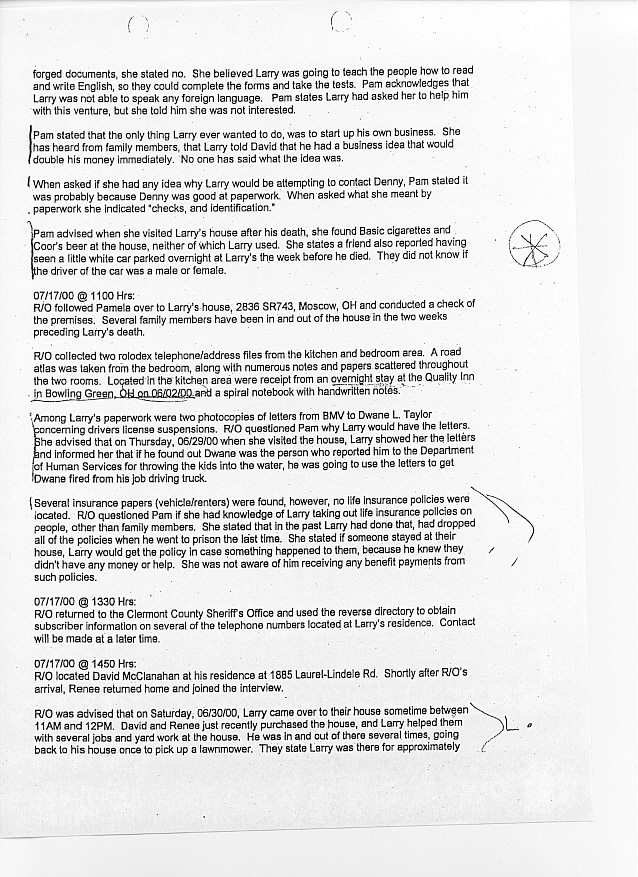 forged documents, she stated no. She believed Larry was going to teach the people how to read
and write English, so they could complete the forms and take the tests. Pam acknowledges that
Larry was not able to speak any foreign language. Pam states Larry had asked her to help him
with this venture, but she told him she was not interested.
Pam stated that the only thing Larry ever wanted to do, was to start up his own business. She
has heard from family members, that Larry told David that he had a business idea that would
double his money immediately. No one has said what the idea was.
When asked if she had any idea why Larry would be attempting to contact Denny, Pam stated it
was probably because Denny was good at paperwork. When asked what she meant by
paperwork she indicated "checks, and identification."
Pam advised when she visited Larry's house after his death, she found Basic cigarettes and
Coor's beer at the house, neither of which Larry used. She states a friend also reported having
seen a little white car parked overnight at Larry's the week before he died. They did not know if
the driver of the car was a male or female.
07/17/00 @ 1100 Hrs:
R/O followed Pamela over to Larry's house, 2836 SR743, Moscow, OH and conducted a check of
the premises. Several family members have been in and out of the house in the two weeks
preceding Larry's death.
R/O collected two rolodex telephone/address files from the kitchen and bedroom area. A road
atlas was taken from the bedroom, along with numerous notes and papers scattered throughout
the two rooms. Located in the kitchen area were receipt from an overnight stay at the Quality Inn
in Bowling Green, OH on 06/02/00 and a spiral notebook with handwritten notes.
Among Larry's paperwork were two photocopies of letters from BMV to Dwane L. Taylor
concerning drivers license suspensions. R/O questioned Pam why Larry would have the letters.
She advised that on Thursday, 06/29/00 when she visited the house, Larry showed her the letters
and informed her that if he found out Dwane was the person who reported him to the Department
of Human Services for throwing the kids into the water, he was going to use the letters to get
Dwane fired from his job driving truck.
Several insurance papers (vehicle/renters) were found, however, no life insurance policies were
located. R/O questioned Pam if she had knowledge of Larry taking out life insurance policies on
people, other than family members. She stated that in the past Larry had done that, had dropped
all of the policies when he went to prison the last time. She stated if someone stayed at their
house, Larry would get the policy in case something happened to them, because he knew they
didn't have any money or help. She was not aware of him receiving any benefit payments from
such policies.
07/17/00 @ 1330 Hrs:
R/O returned to the Clermont County Sheriff's Office and used the reverse directory to obtain
subscriber information on several of the telephone numbers located at Larry's residence. Contact
will be made at a later time.
07/17/00 @ 1450 Hrs:
R/O located David McClanahan at his residence at 1885 Laurel-Lindele Rd. Shortly after R/O's
arrival, Renee returned home and joined the interview.
R/O was advised that on Saturday, 06/30/00, Larry came over to their house sometime between
11AM and 12PM. David and Renee just recently purchased the house, and Larry helped them
with several jobs and yard work at the house. He was in and out of there several times, going
back to his house once to pick up a lawnmower. They state Larry was there for approximately